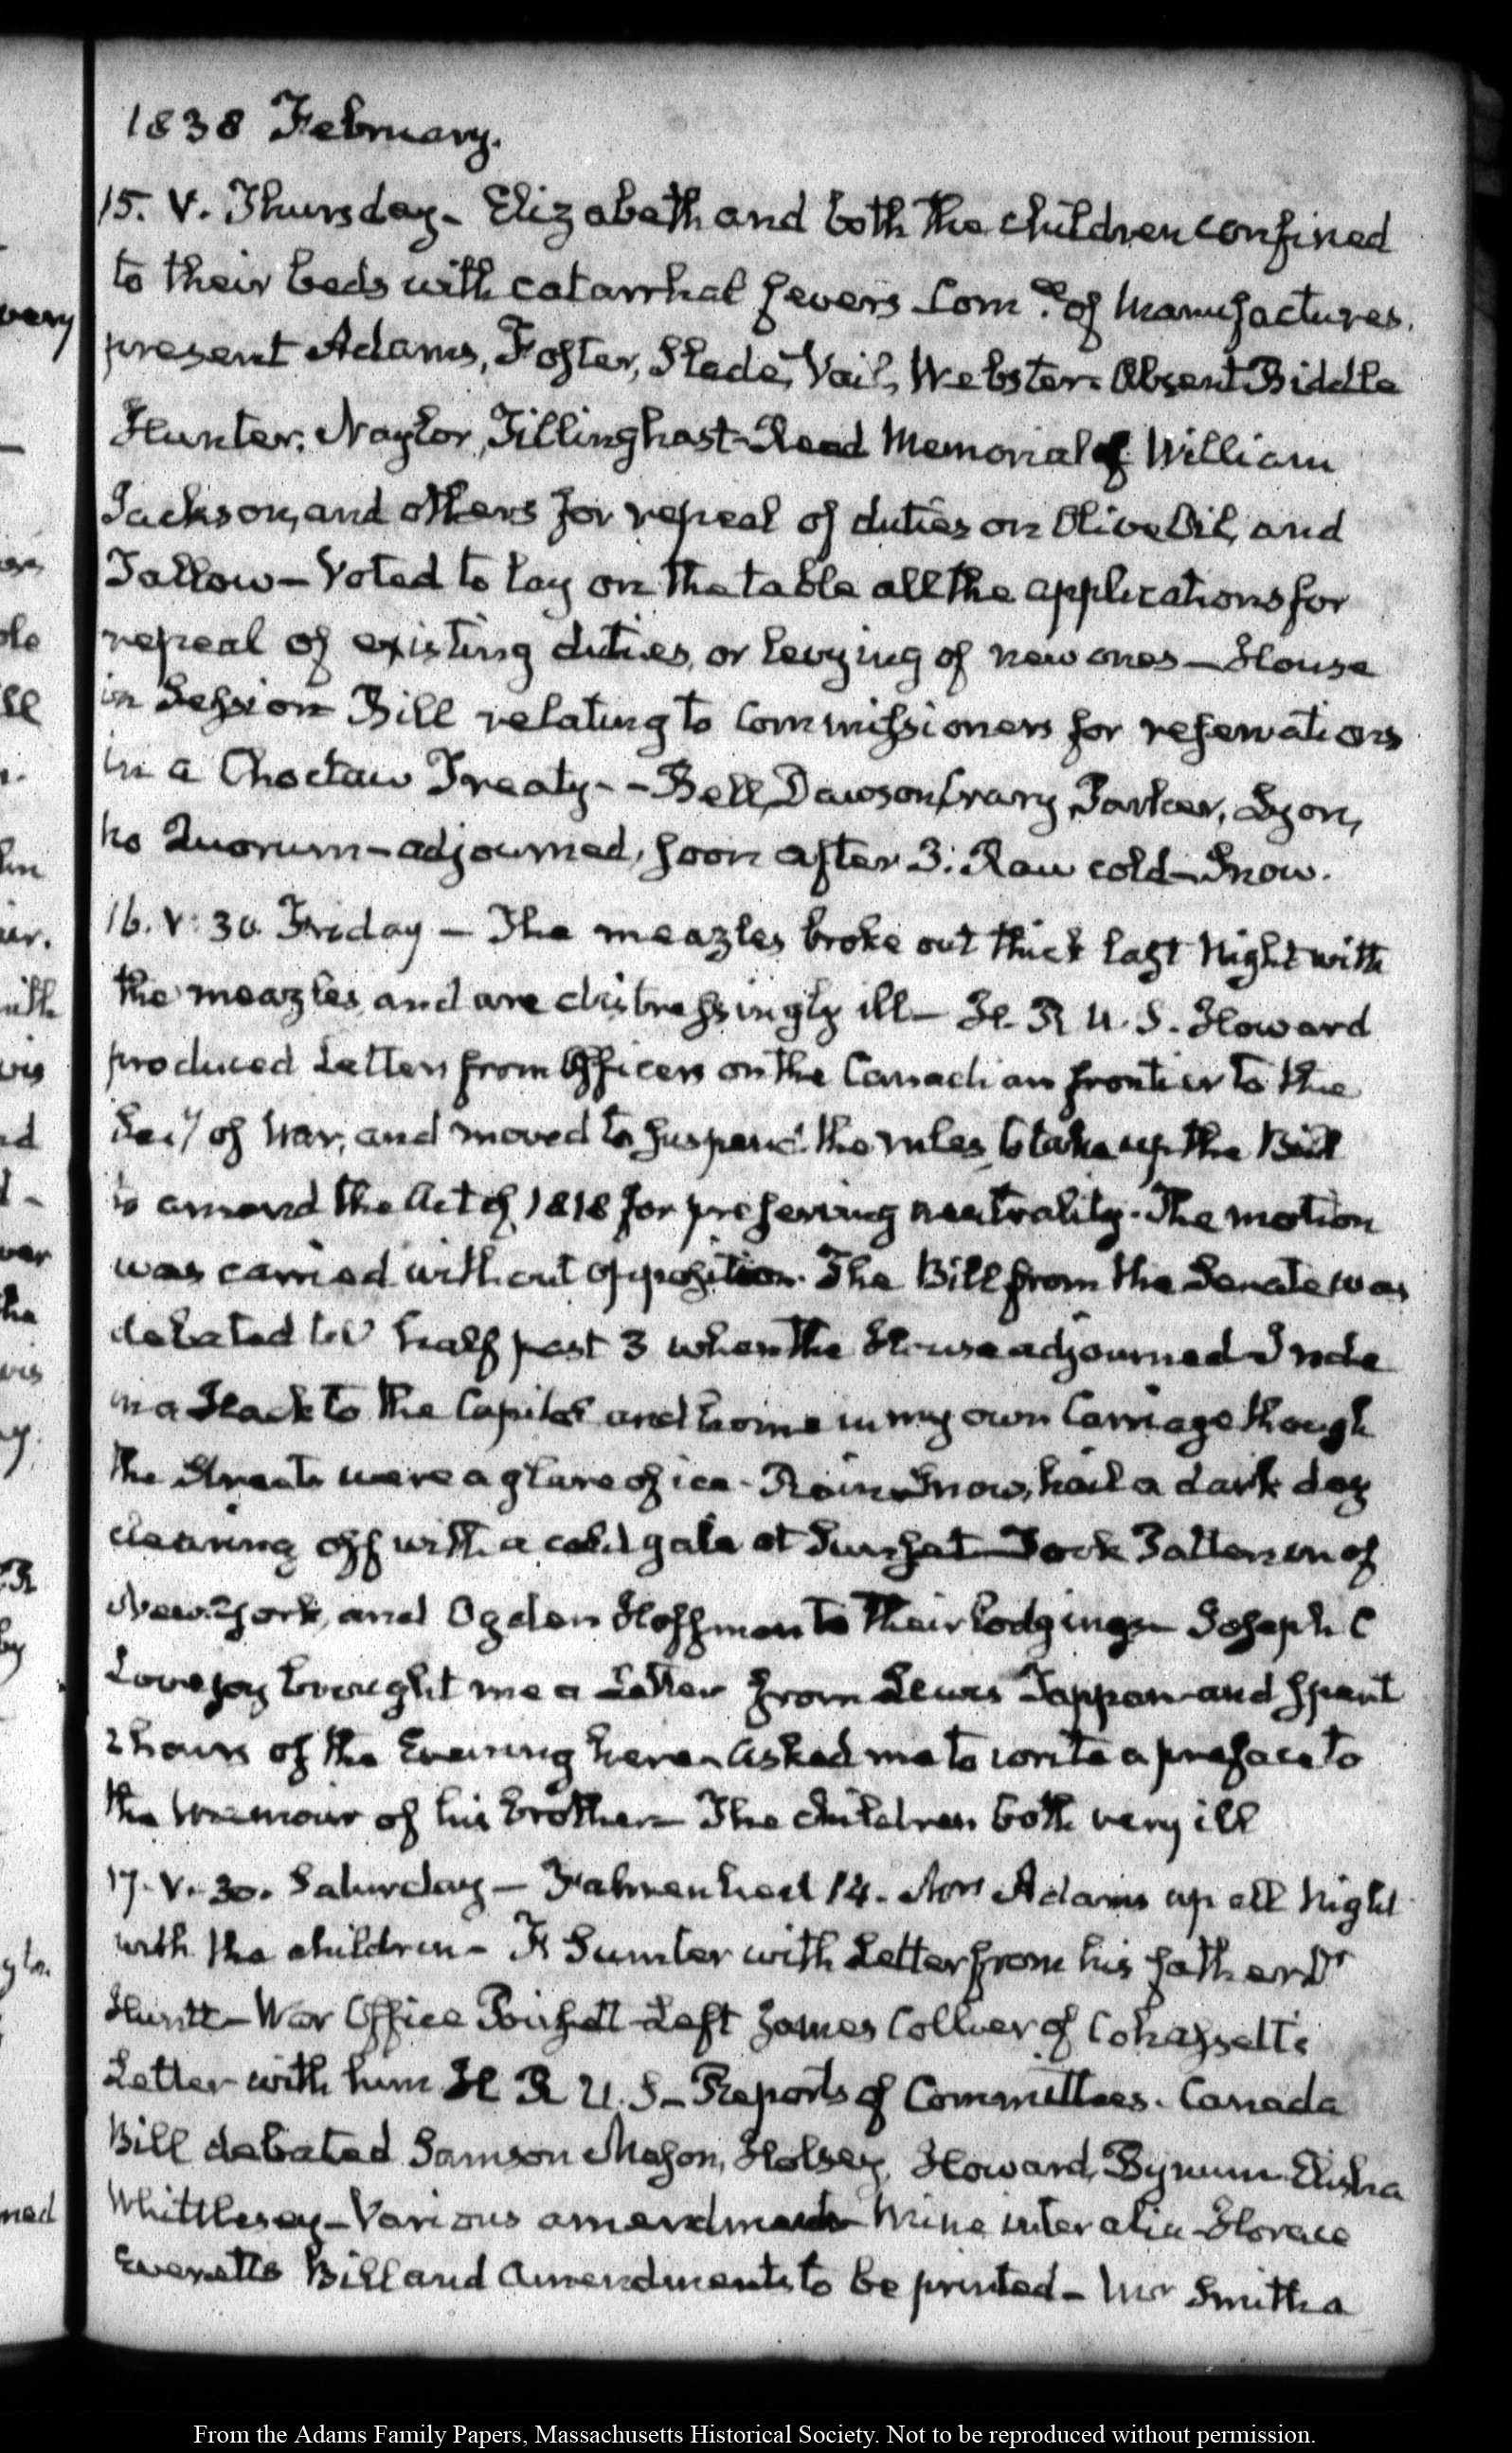 1838 February.
15. V. Thursday – Elizabeth and both the children confined
to their beds with catarrhal fevers Com.ee of Manufactures.
present Adams, Foster, Slade, Vail, Webster. Absent Biddle
Hunter, Naylor, Tillinghast – Read Memorial of William
Jackson, and others for repeal of duties on Olive Oil, and
Tallow – Voted to lay on the table all the applications for
repeal of existing duties, or levying of new ones – House
in Session Bill relating to Commissioners for reservations
in a Choctaw Treaty – – Bell, Dawson, Crary, Parker, Lyon,
no Quorum – adjourned, soon after 3. Raw cold – Snow.
16. V. 30. Friday – The meazles broke out thick last Night with
the meazles and are distressingly ill – H. R U. S. Howard
produced Letters from Officers on the Canadian frontier to the
Secy of War, and moved to suspend the rules, to take up the Bill
to amend the Act of 1818 for preserving neutrality. The motion
was carried without opposition. The Bill from the Senate was
debated till half past 3 when the House adjourned I rode
in a Hack to the Capitol and home in my own Carriage though
the Streets were a glare of ice – Rain Snow, hail a dark day
clearing off with a cold gale at Sunset – Took Patterson of
New-York, and Ogden Hoffman to their lodgings – Joseph C
Lovejoy brought me a Letter from Lewis Tappan and spent
2 hours of the Evening here – asked me to write a preface to
the memoir of his brother – The children both very ill
17. V. 30. Saturday – Fahrenheit 14. Mrs Adams up all Night
with the children – Sumter with Letter from his father Dr
Huntt – War Office Poinsett – Left James Collier of Cohasset's
Letter with him H R U. S – Reports of Committees. Canada
Bill debated Samson Mason, Halsey, Howard, Bynum Elisha
Whittlesey – Various amendments – Mine inter alia – Horace
Everetts Bill and Amendments to be printed – Mr Smith a
From the Adams Family Papers, Massachusetts Historical Society. Not to be reproduced without permission.